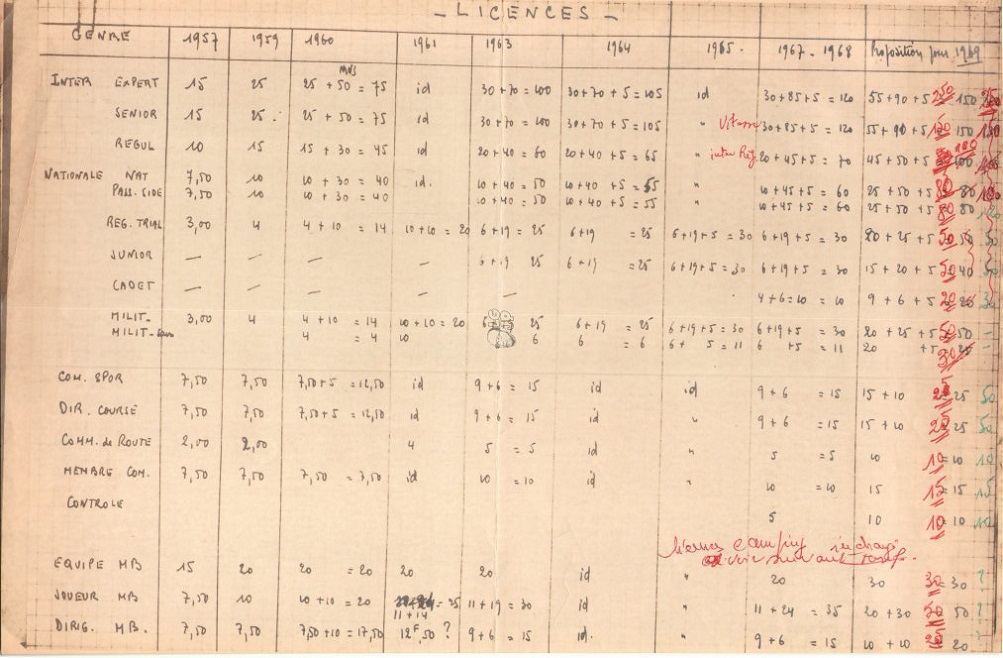 - LICENCES -
GENRE 1957 1959 1960 1961 1963 1964 1965. 1967-1968 Proposition pour 1969
mds
INTER EXPERT 15 25 25 + 50 = 75 id 30+70 = 100 30+70 + 5 = 105 id 30+85+5 = 120 55+90+5 250 150
SENIOR 15 25. 25 + 50 = 75 id 30+70 = 100 30+70 + 5 = 105 " Vitesse 30+85+5 = 120 55+90+5 150 150
REGUL 10 15 15 + 30 = 45 id 20+40 = 60 20+40 + 5 = 65 " inter Reg 20+45+5 = 70 45+50+5 100
NATIONALE NAT 7,50 10 10 + 30 = 40 id. 10+40 = 50 10+40 + 5 = 55 " 10+45+5 = 60 25+50+5 80 80
PASS. SIDE 7,50 10 10 + 30 = 40 10+40 = 50 10+40 + 5 = 55 " 10+45+5 = 60 25+50+5 80 80 120
REG. TRIAL 3,00 4 4 + 10 = 14 10+10 = 20 6+19 = 25 6+19 = 25 6+19+5 = 30 6+19+5 = 30 20+25+5 50 50 50
JUNIOR — — — — 6+19 25 6+19 = 25 6+19+5 = 30 6+19+5 = 30 15+20+5 50 40 50
CADET — — — — — 4+6=10 = 10 9+6+5 20 20 30
MILIT- 3,00 4 4 + 10 = 14 10+10 = 20 6 25 6+19 = 25 6+19+5 = 30 6+19+5 = 30 20+25+5 50 50 -
MILIT- 4 = 4 10 6 6 = 6 6+ 5 = 11 6 +5 = 11 20 +5 30 25 -
COM. SPOR 7,50 7,50 7,50+5 = 12,50 id 9+6 = 15 id id 9+6 = 15 15+10 25 25 50
DIR. COURSE 7,50 7,50 7,50+5 = 12,50 id 9+6 = 15 id " 9+6 = 15 15+10 25 25 50
COMM. de ROUTE 2,00 2,00 4 5 = 5 id " 5 = 5 10 10 = 10 10
MEMBRE COM. 7,50 7,50 7,50 = 7,50 id 10 = 10 id " 10 = 10 15 15 = 15 15
CONTROLE 5 10 10 = 10 10
licence camping
voir suivant
EQUIPE MB 15 20 20 = 20 20 20 id " 20 30 30 = 30 ?
JOUEUR MB 7,50 10 10+10 = 20 = 25 11+19 = 30 id " 11+24 = 35 20+30 50 50 ?
11+14
DIRIG. MB. 7,50 7,50 7,50+10 = 17,50 12F,50 ? 9+6 = 15 id. " 9+6 = 15 10+10 20 ?